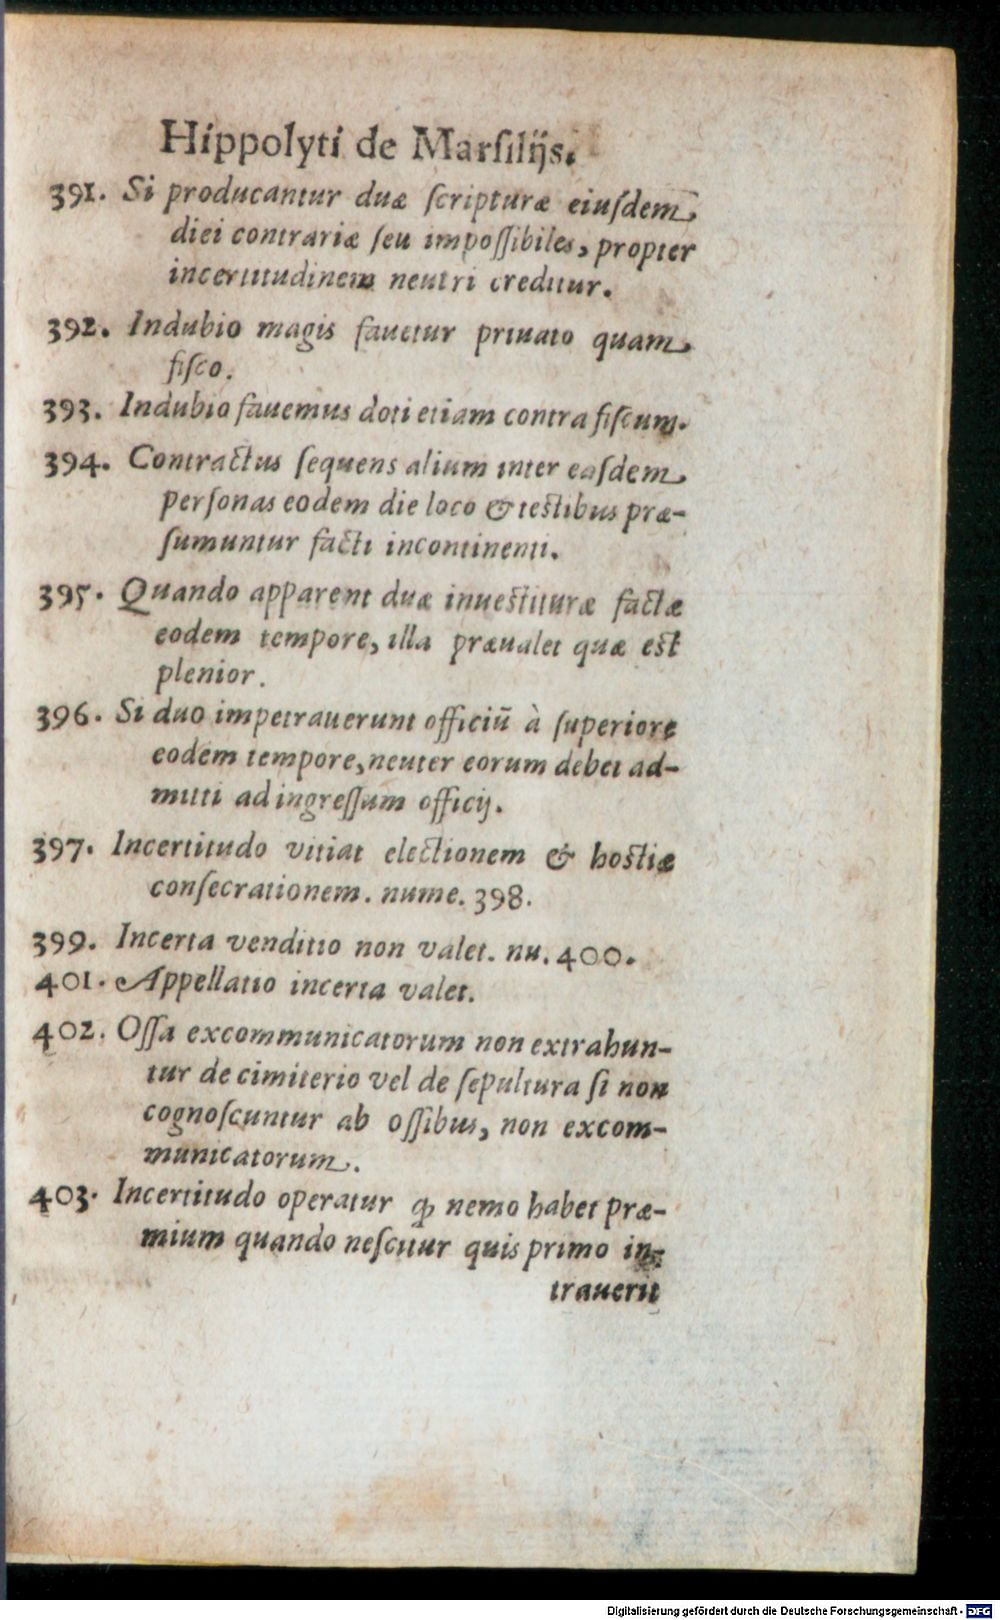 Hippolyti de Marſilijs.
391. Si producantur duæ ſcripturæ eiuſdem
diei contrariæ ſeu impoſſibiles, propter
incertitudinem neutri creditur.
392. Indubio magis fauetur priuato quam
fiſco.
393. Indubio fauemus doti etiam contra fiſcum.
394. Contractus ſequens alium inter eaſdem
perſonas eodem die loco & teſtibus præ-
ſumuntur facti incontinenti.
395. Quando apparent duæ inueſtituræ factæ
eodem tempore, illa præualet quæ eſt
plenior.
396. Si duo impetrauerunt officiũ à ſuperiore
eodem tempore, neuter eorum debet ad-
mitti ad ingreſſum officij.
397. Incertitudo vitiat electionem & hoſtiæ
conſecrationem. nume. 398.
399. Incerta venditio non valet. nu. 400.
401. Appellatio incerta valet.
402. Oſſa excommunicatorum non extrahun-
tur de cimiterio vel de ſepultura ſi non
cognoſcuntur ab oſſibus, non excom-
municatorum.
403. Incertitudo operatur ꝙ nemo habet præ-
mium quando neſcitur quis primo in-
trauerit
Digitalisierung gefördert durch die Deutsche Forschungsgemeinschaft - DFG